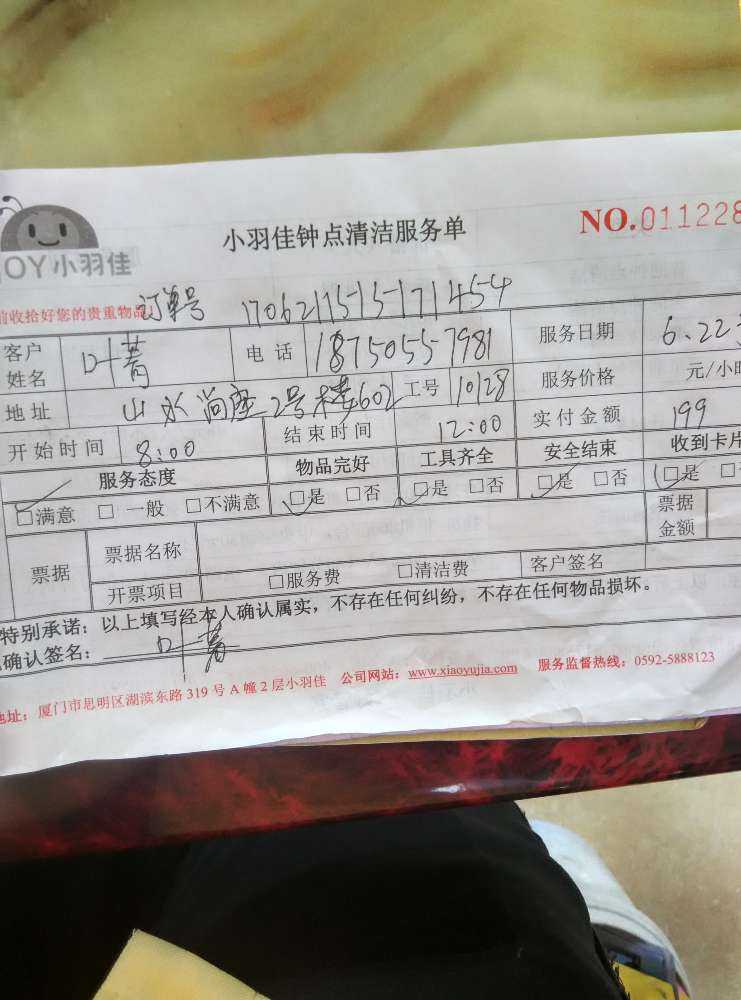 小羽佳钟点清洁服务单
NO.011228
JOY小羽佳
前收拾好您的贵重物品 订单号 17062115-15-171454
客户姓名 叶菁 电话 18750557981 服务日期 6.22
地址 山水尚座2号楼602 工号 10128 服务价格 元/小时
开始时间 8:00 结束时间 12:00 实付金额 199
服务态度 物品完好 工具齐全 安全结束 收到卡片
□满意 □一般 □不满意 □是 □否 □是 □否 □是 □否 □是
票据 票据名称 票据金额
开票项目 □服务费 □清洁费 客户签名
特别承诺：以上填写经本人确认属实，不存在任何纠纷，不存在任何物品损坏。
确认签名：叶菁
地址：厦门市思明区湖滨东路319号A幢2层小羽佳 公司网站：www.xiaoyujia.com 服务监督热线：0592-5888123